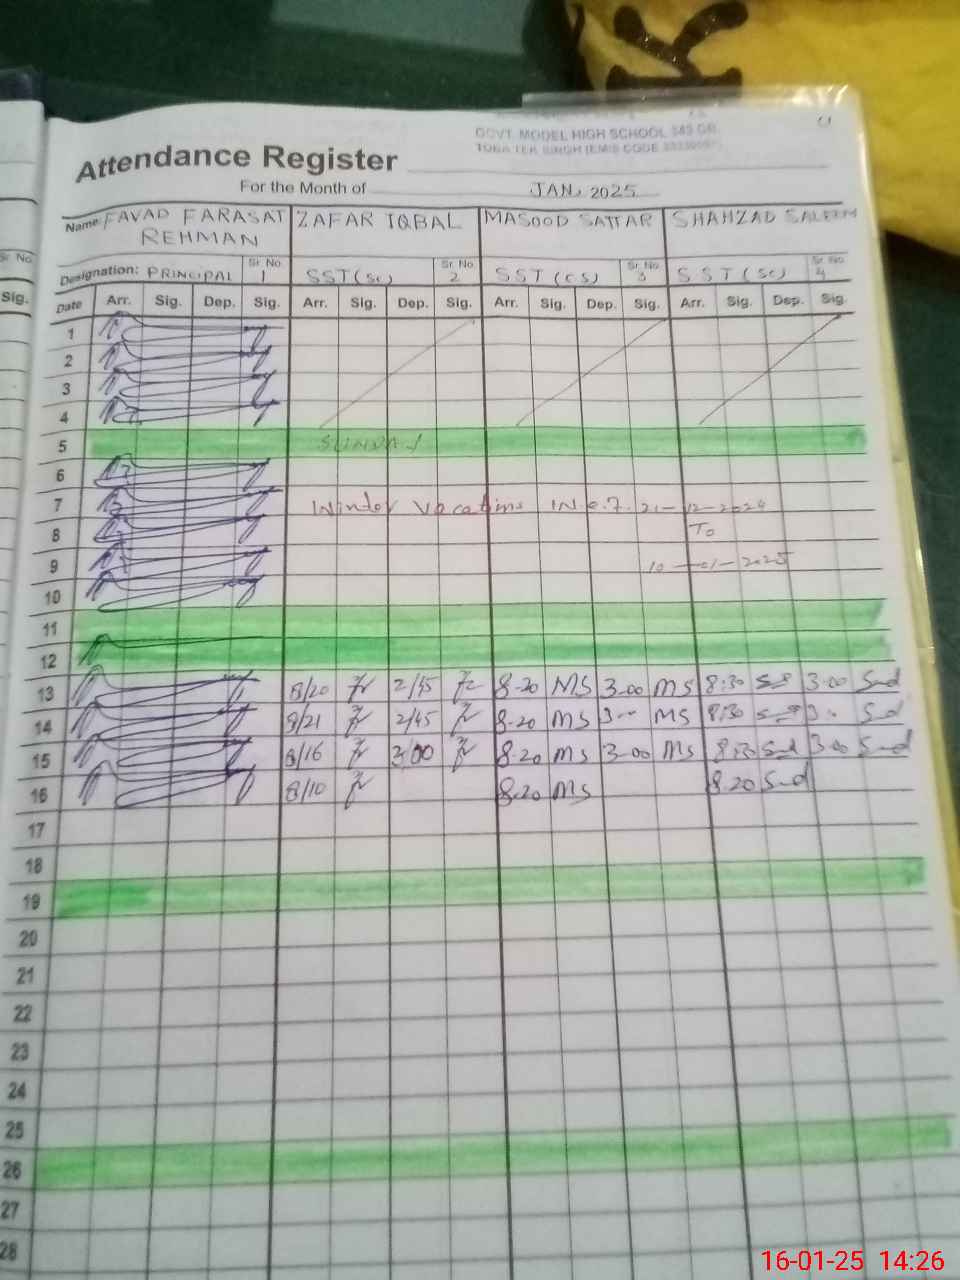 GOVT. MODEL HIGH SCHOOL 343 GB.
TOBA TEK SINGH (EMIS CODE
Attendance Register
For the Month of JAN, 2025
Name: FAVAD FARASAT REHMAN ZAFAR IQBAL MASOOD SATTAR SHAHZAD SALEEM
Sr. No Designation: PRINCIPAL Sr. No. 1 SST(Sc) Sr. No. 2 SST(CS) Sr. No. 3 SST(Sc) Sr. No. 4
Sig. Date Arr. Sig. Dep. Sig. Arr. Sig. Dep. Sig. Arr. Sig. Dep. Sig. Arr. Sig. Dep. Sig.
1
2
3
4
5 SUNDAY
6
7 Winter Vacations 12-2024
8 To
9 10-01-2025
10
11
12
13 8/20 8-20 MS 3-00 MS 8:30 3-00
14 8/21 2/45 8-20 MS MS 8:30
15 8/16 3/00 8-20 MS 3-00 MS 3-00
16 8/10 8-20 MS 8-20
17
18
19
20
21
22
23
24
25
26
27
28
16-01-25 14:26